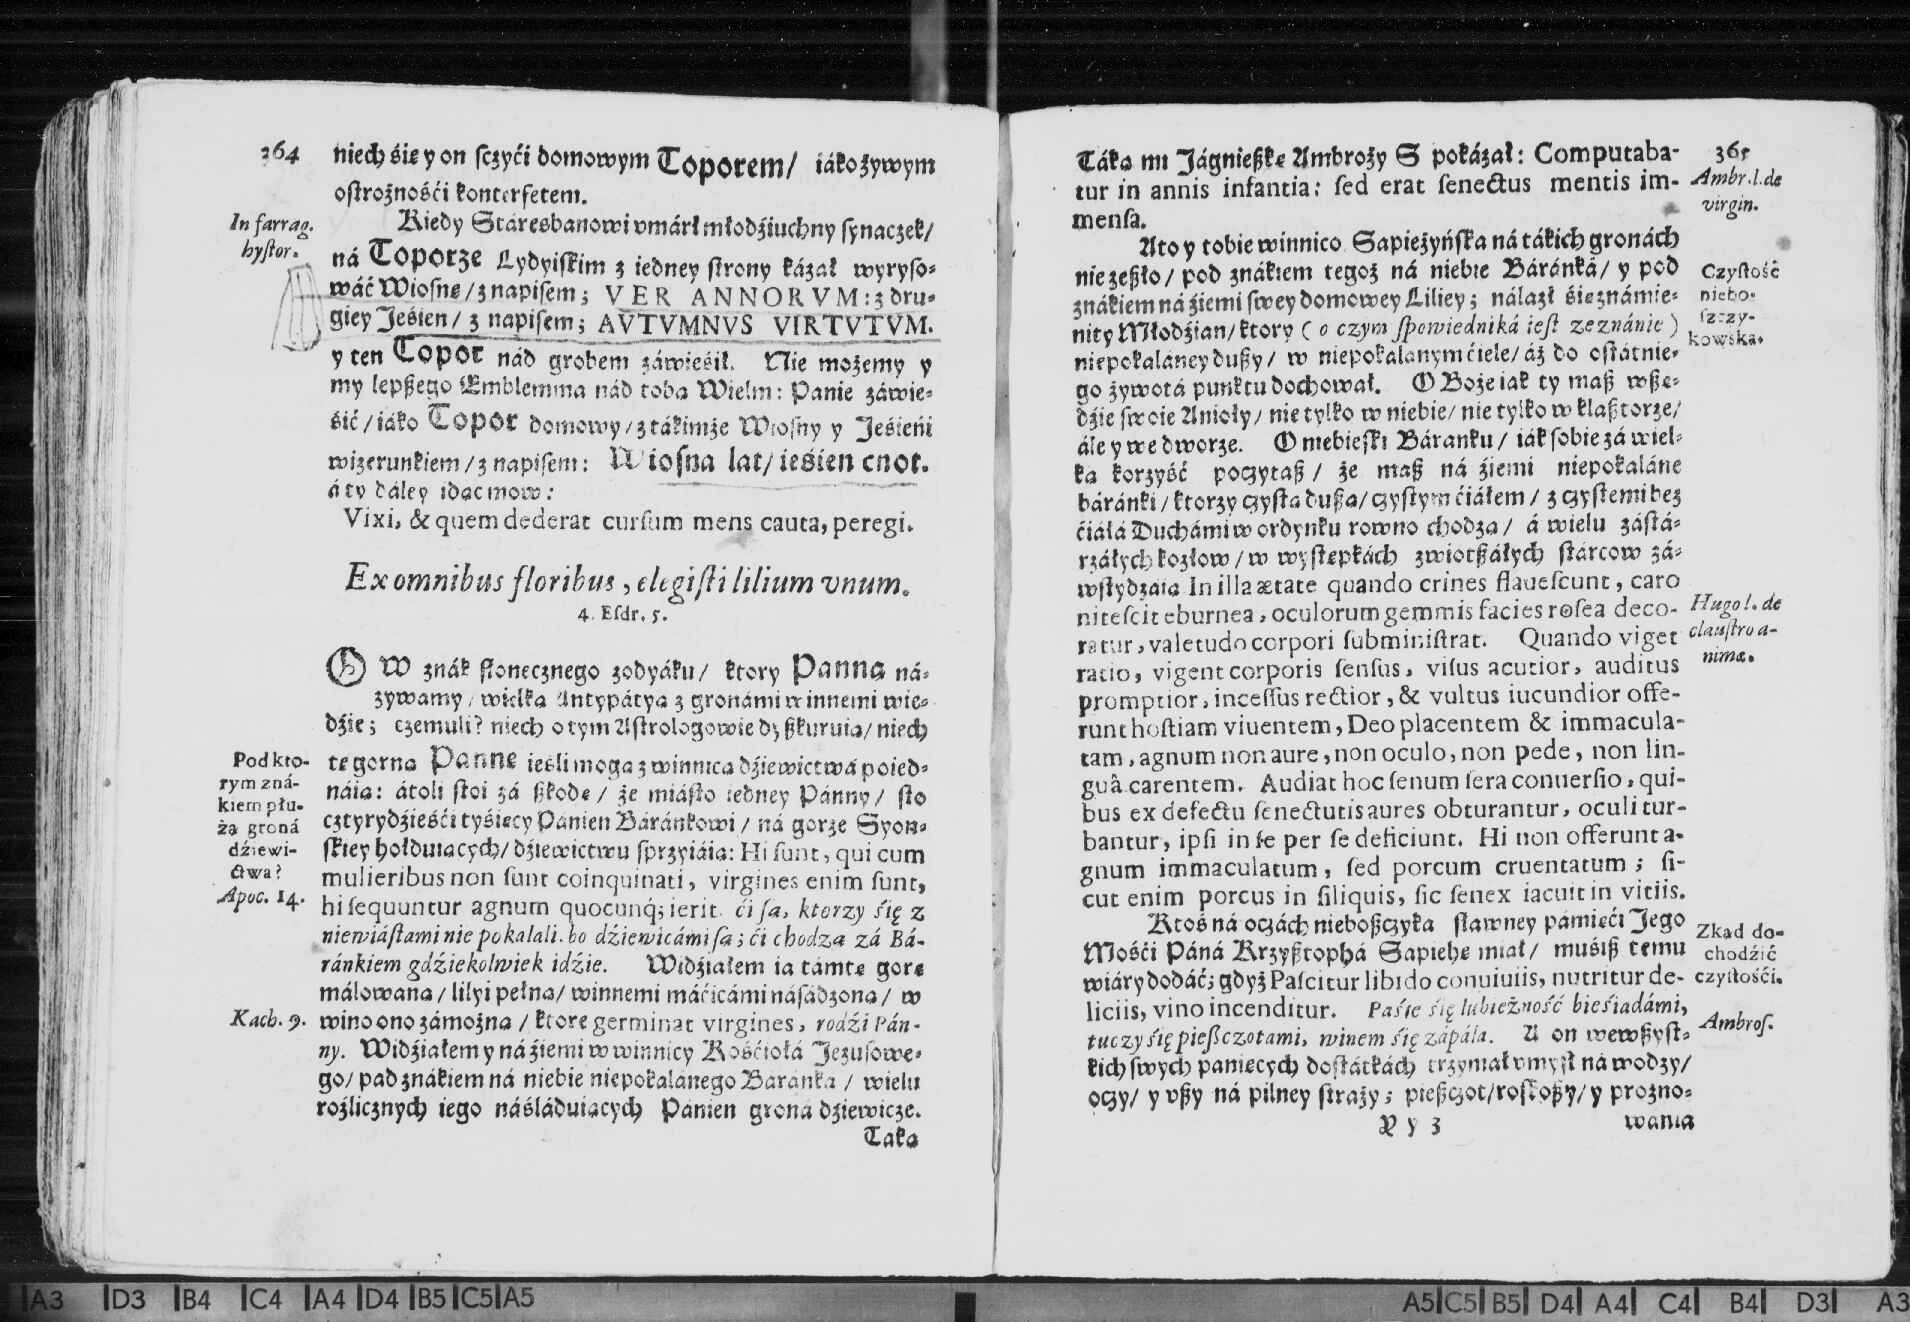 364
niech śię y on ſczyći domowym Toporem/ iáko żywym
oſtrożnośći konterfetem.
In farrag.
hyſtor.
Kiedy Stáresbanowi vmárł młodźiuchny ſynaczek/
ná Toporze Lydyiſkim z iedney ſtrony kázał wyryſo-
wáć Wioſnę/ z napiſem; VER ANNORVM: z dru-
giey Jeśień/ z napiſem; AVTVMNVS VIRTVTVM.
y ten Topor nád grobem záwieśił. Nie możemy y
my lepßego Emblemma nád tobą Wielm: Panie záwie-
śić/ iáko Topor domowy/ z tákimże Wioſny y Jeśieńi
wizerunkiem/ z napiſem: Wioſna lat/ ieśień cnot.
á ty dáley idąc mow:
Vixi, & quem dederat curſum mens cauta, peregi.
Ex omnibus floribus, elegiſti lilium vnum.
4. Eſdr. 5.
W znák ſłonecznego zodyáku/ ktory Panną ná-
zywamy, wielka Antypátya z gronámi winnemi wie-
dźie; czemuli? niech o tym Aſtrologowie dyßkuruią/ niech
Pod kto-
rym zná-
kiem płu-
żą groná
dźiewi-
ctwa?
Apoc. 14.
tę gorną Pannę ieśli mogą z winnicą dźiewictwá poied-
náią: átoli ſtoi zá ßkodę/ że miáſto iedney Pánny/ ſto
cztyrydźieśći tyśięcy Pánien Báránkowi/ ná gorze Syon-
ſkiey hołduiących/ dźiewictwu ſprzyiáią: Hi ſunt, qui cum
mulieribus non ſunt coinquinati, virgines enim ſunt,
hi ſequuntur agnum quocunq; ierit. ći ſą, ktorzy śię z
niewiáſtami nie pokalali. bo dźiewicámi ſą; ći chodzą zá Bá-
ránkiem gdźiekolwiek idźie. Widźiałem ia támtę gorę
málowaną/ lilyi pełną/ winnemi máćicámi náſádzoną/ w
Zach. 9.
wino ono zámożną/ ktore germinat virgines, rodźi Pán-
ny. Widźiałem y ná źiemi w winnicy Kośćiołá Jezuſowe-
go/ pad znákiem ná niebie niepokalánego Báránka/ wielu
rożlicznych iego náśláduiących Pánien groná dźiewicze.
Táką
365
Táką mi Jágnießkę Ambroży S pokázał: Computaba-
tur in annis infantia: ſed erat ſenectus mentis im-
menſa.
Ambr. l. de
virgin.
Ato y tobie winnico Sapieżyńſka ná tákich gronách
nie zeßło/ pod znákiem tegoż ná niebie Báránká/ y pod
znákiem ná źiemi ſwey domowey Liliey; nálazł śię známie-
nity Młodźian/ ktory (o czym ſpowiedniká ieſt zeznánie)
niepokaláney dußy/ w niepokalanym ćiele/ áż do oſtátnie-
go żywotá punktu dochował. O Boże iak ty maß wßę-
dźie ſwoie Anioły/ nie tylko w niebie/ nie tylko w klaßtorze/
ále y we dworze. O niebieſki Báranku/ iák ſobie zá wiel-
ką korzyść poczytaß/ że maß ná źiemi niepokaláne
báránki/ ktorzy czyſtą dußą/ czyſtym ćiáłem/ z czyſtemi bez
ćiáłá Duchámi w ordynku rowno chodzą/ á wielu záſtá-
rzáłych kozłow/ w wyſtępkách zwiotßáłych ſtárcow zá-
wſtydzaią In illa ætate quando crines flaueſcunt, caro
niteſcit eburnea, oculorum gemmis facies roſea deco-
ratur, valetudo corpori ſubminiſtrat. Quando viget
ratio, vigent corporis ſenſus, viſus acutior, auditus
promptior, inceſſus rectior, & vultus iucundior offe-
runt hoſtiam viuentem, Deo placentem & immacula-
tam, agnum non aure, non oculo, non pede, non lin-
guâ carentem. Audiat hoc ſenum ſera conuerſio, qui-
bus ex defectu ſenectutis aures obturantur, oculi tur-
bantur, ipſi in ſe per ſe deficiunt. Hi non offerunt a-
gnum immaculatum, ſed porcum cruentatum; ſi-
cut enim porcus in ſiliquis, ſic ſenex iacuit in vitiis.
Czyſtość
niebo-
ſzczy-
kowska.
Hugo l. de
clauſtro a-
nimæ.
Ktoś ná oczách nieboßczyka ſławney pámięći Jego
Mośći Páná Krzyßtophá Sapiehę miał/ muśiß temu
wiáry dodáć; gdyż Paſcitur libido conuiuiis, nutritur de-
liciis, vino incenditur. Paśie śię lubieżność bieśiadámi,
tuczy śię pießczotami, winem śię zápála. A on we wßyſt-
kich ſwych pánięcych doſtátkách trzymał vmyſł ná wodzy/
oczy/ y vßy ná pilney ſtraży; pießczot/ roſkoßy/ y prożno-
Zkąd do-
chodźić
czyſtośći.
Ambroſ.
wánia